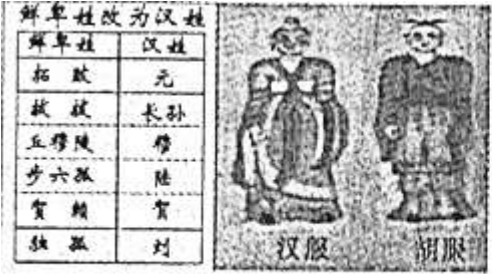 鲜卑姓改为汉姓
鲜卑姓 汉姓
拓跋 元
拔拔 长孙
丘穆陵 穆
步六孤 陆
贺赖 贺
独孤 刘
汉服 胡服